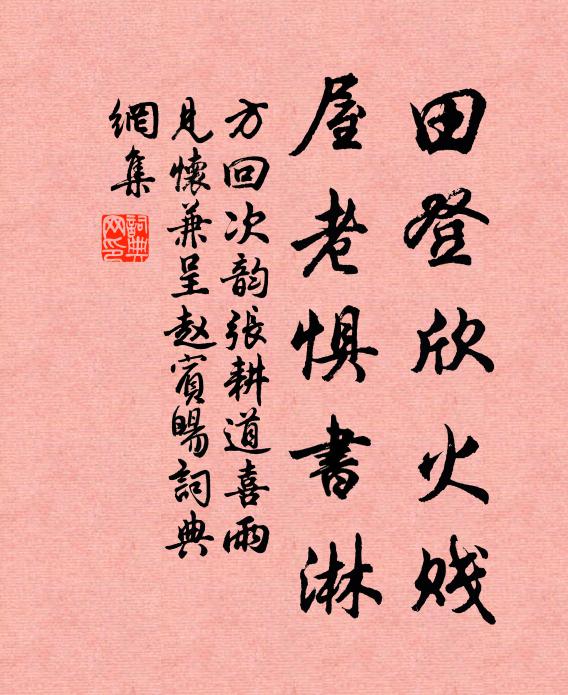 田登欣火戏
屋老惧書淋
方回次韵張耕道喜雨
見懷兼呈赵賓暘詞典
網集
詞典网印